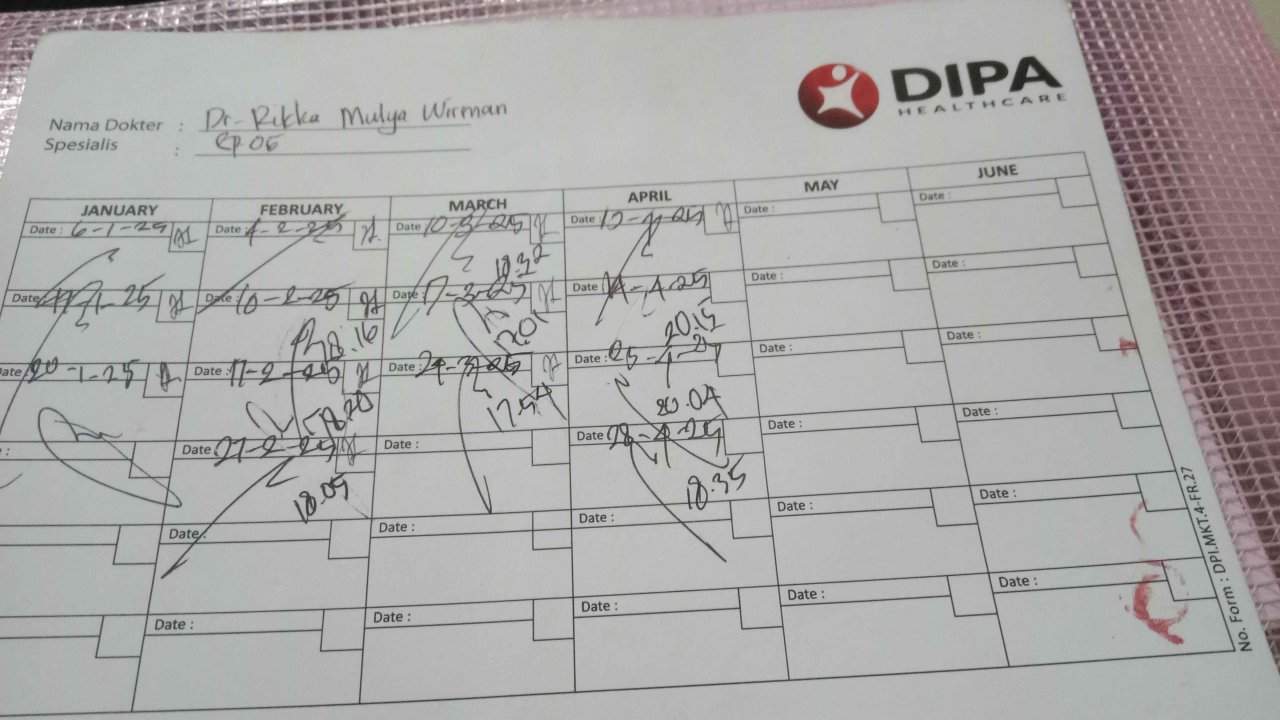 DIPA
HEALTHCARE
Nama Dokter : Dr. Rikka Mulya Wirman
Spesialis :
JANUARY FEBRUARY MARCH APRIL MAY JUNE
Date : 6-1-25 Date : 4-2-25 Date : 10-3-25 Date : 12-4-25 Date : Date :
18.32
Date : -1-25 Date : 10-2-25 Date : 17-3-25 Date : 14-4-25 Date : Date :
18.16 20.15
Date : 20-1-25 Date : 17-2-25 Date : 24-3-25 Date : 25-4-25 Date : Date :
18.20 17.54 20.04
Date : 27-2-25 Date : Date : 28-4-25 Date : Date :
18.05 18.35
Date : Date : Date : Date : Date :
Date : Date : Date : Date : Date :
No. Form : DPI.MKT.4-FR.27